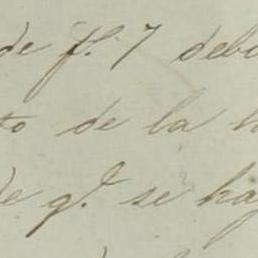 de f. 7 debi
to de la
de q.e se hay